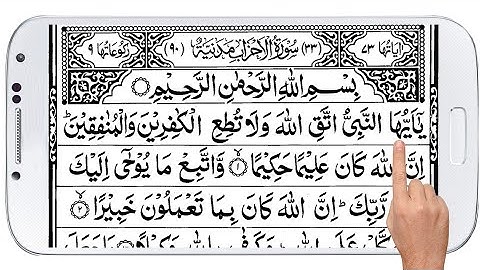 اٰیَاتُهَا ٧٣ (٣٣) سُوْرَةُ الْاَحْزَابِ مَدَنِیَّةٌ (٩٠) رُكُوْعَاتُهَا ٩
بِسْمِ اللهِ الرَّحْمٰنِ الرَّحِیْمِ
یٰۤاَیُّهَا النَّبِیُّ اتَّقِ اللهَ وَلَا تُطِعِ الْكٰفِرِیْنَ وَالْمُنٰفِقِیْنَ ؕ
اِنَّ اللهَ كَانَ عَلِیْمًا حَكِیْمًا ١ وَّاتَّبِعْ مَا یُوْحٰۤی اِلَیْكَ
رَبِّكَ ؕ اِنَّ اللهَ كَانَ بِمَا تَعْمَلُوْنَ خَبِیْرًا ٢